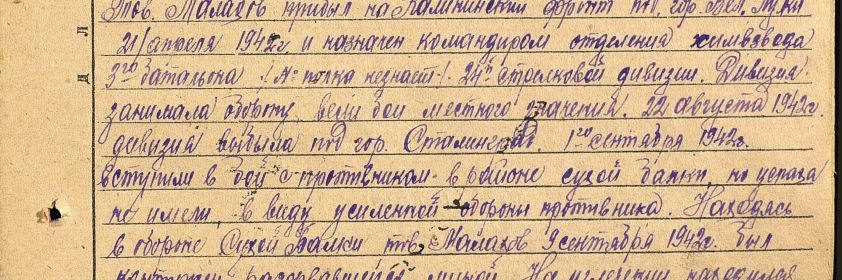 Тов. Малахов прибыл на Калининский фронт под гор. Вел. Луки
21/апреля 1942г и назначен командиром отделения химвзвода
3го батальона /№ полка незнает/. 24й стрелковой дивизии. Дивизия
занимала оборону, вели бои местного значения. 22 августа 1942г.
дивизия выбыла под гор. Сталинград. 1го сентября 1942г.
вступили в бой с противником в районе сухой балки, но успеха
не имели, в виду усиленной обороны противника. Находясь
в обороне Сухой Балки тов. Малахов 9 сентября 1942г. был
контужен разорвавшейся миной. На излечении находился
Д Л